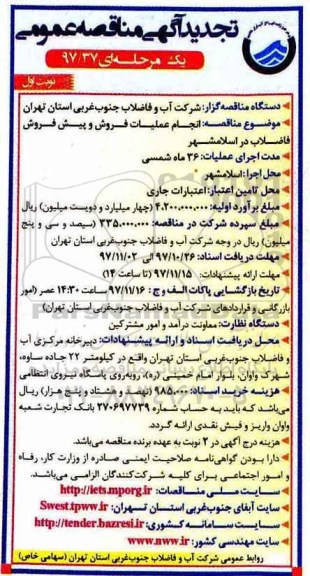 تجدید آگهی مناقصه عمومی
یک مرحله‌ای ۹۷/۳۷
نوبت اول
دستگاه مناقصه‌گزار: شرکت آب و فاضلاب جنوب‌غربی استان تهران
موضوع مناقصه: انجام عملیات فروش و پیش فروش
فاضلاب در اسلامشهر
مدت اجرای عملیات: ۳۶ ماه شمسی
محل اجرا: اسلامشهر
محل تامین اعتبار: اعتبارات جاری
مبلغ برآورد اولیه: ۴.۲۰۰.۰۰۰.۰۰۰ (چهار میلیارد و دویست میلیون) ریال
مبلغ سپرده شرکت در مناقصه: ۳۳۵.۰۰۰.۰۰۰ (سیصد و سی و پنج
میلیون) ریال در وجه شرکت آب و فاضلاب جنوب‌غربی استان تهران
مهلت دریافت اسناد: ۹۷/۱۰/۲۶ الی ۹۷/۱۱/۰۲
مهلت ارائه پیشنهادات: ۹۷/۱۱/۱۵ (تا ساعت ۱۴)
تاریخ بازگشایی پاکات الف و ج: ۹۷/۱۱/۱۶ ساعت ۱۴:۳۰ عصر (امور
بازرگانی و قراردادهای شرکت آب و فاضلاب جنوب‌غربی استان تهران)
دستگاه نظارت: معاونت درآمد و امور مشترکین
محل دریافت اسناد و ارائه پیشنهادات: دبیرخانه مرکزی آب
و فاضلاب جنوب‌غربی استان تهران واقع در کیلومتر ۲۲ جاده ساوه،
شهرک واوان، بلوار امام خمینی (ره)، روبه‌روی پاسگاه نیروی انتظامی
هزینه خرید اسناد: ۹۸۵.۰۰۰ (نهصد و هشتاد و پنج هزار) ریال
می‌باشد که باید به حساب شماره ۲۷۰۶۹۷۷۳۹ بانک تجارت شعبه
واوان واریز و فیش نقدی ارائه گردد.
هزینه درج آگهی در ۲ نوبت به عهده برنده مناقصه می‌باشد.
دارا بودن گواهی‌نامه صلاحیت ایمنی صادره از وزارت کار، رفاه
و امور اجتماعی برای کلیه شرکت‌کنندگان الزامی می‌باشد.
سایت ملی مناقصات: http://iets.mporg.ir
سایت آبفای جنوب‌غربی استان تهران: Swest.tpww.ir
سایت سامانه کشوری: http://tender.bazresi.ir
سایت مهندسی کشور: www.nww.ir
روابط عمومی شرکت آب و فاضلاب جنوب‌غربی استان تهران (سهامی خاص)